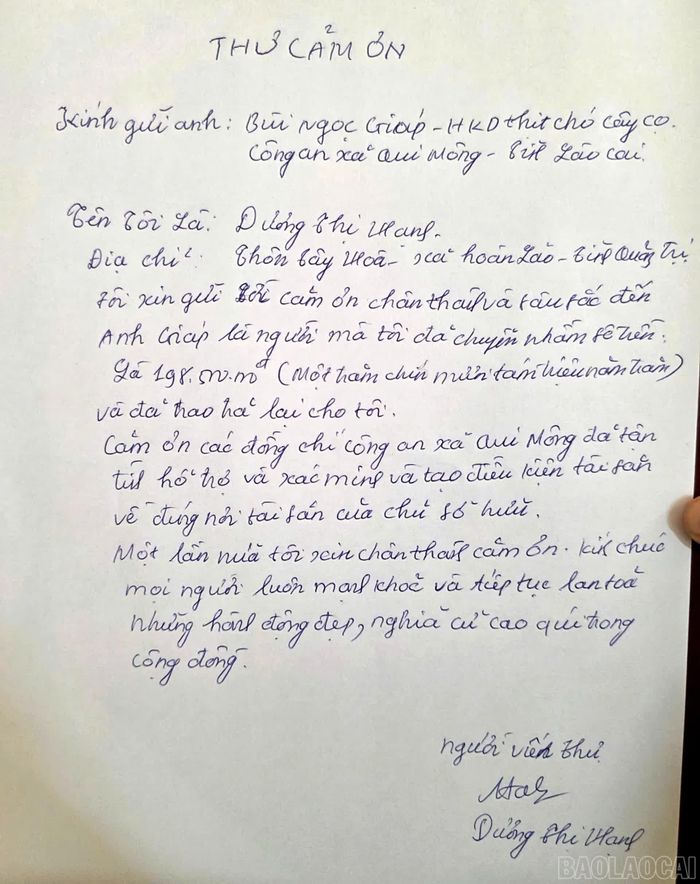 THƯ CẢM ƠN
Kính gửi anh: Bùi Ngọc Giáp - HKD thịt chó Cây Cọ.
Công an xã Qui Mông - Tỉnh Lào Cai.
Tên Tôi Là: Dương Thị Hạnh.
Địa chỉ: Thôn Tây Hoà - xã Hoàn Lão - Tỉnh Quảng Trị
Tôi xin gửi lời cảm ơn chân thành và sâu sắc đến
Anh Giáp là người mà tôi đã chuyển nhầm số tiền.
Là 198.500.000đ (Một trăm chín mươi tám triệu năm trăm)
và đã trao trả lại cho tôi.
Cảm ơn các đồng chí công an xã Qui Mông đã tận
tình hỗ trợ và xác minh và tạo điều kiện tài sản
về đúng nơi tài sản của chủ sở hữu.
Một lần nữa tôi xin chân thành cảm ơn. Kính chúc
mọi người luôn mạnh khoẻ và tiếp tục lan toả
những hành động đẹp, nghĩa cử cao quí trong
cộng đồng.
người viết thư
Dương Thị Hạnh
BAOLAOCAI